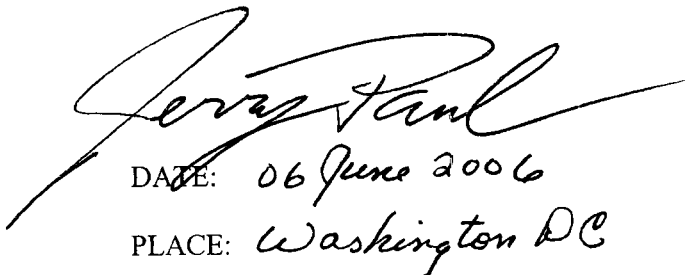 Jerry Paul
DATE: 06 June 2006
PLACE: Washington DC